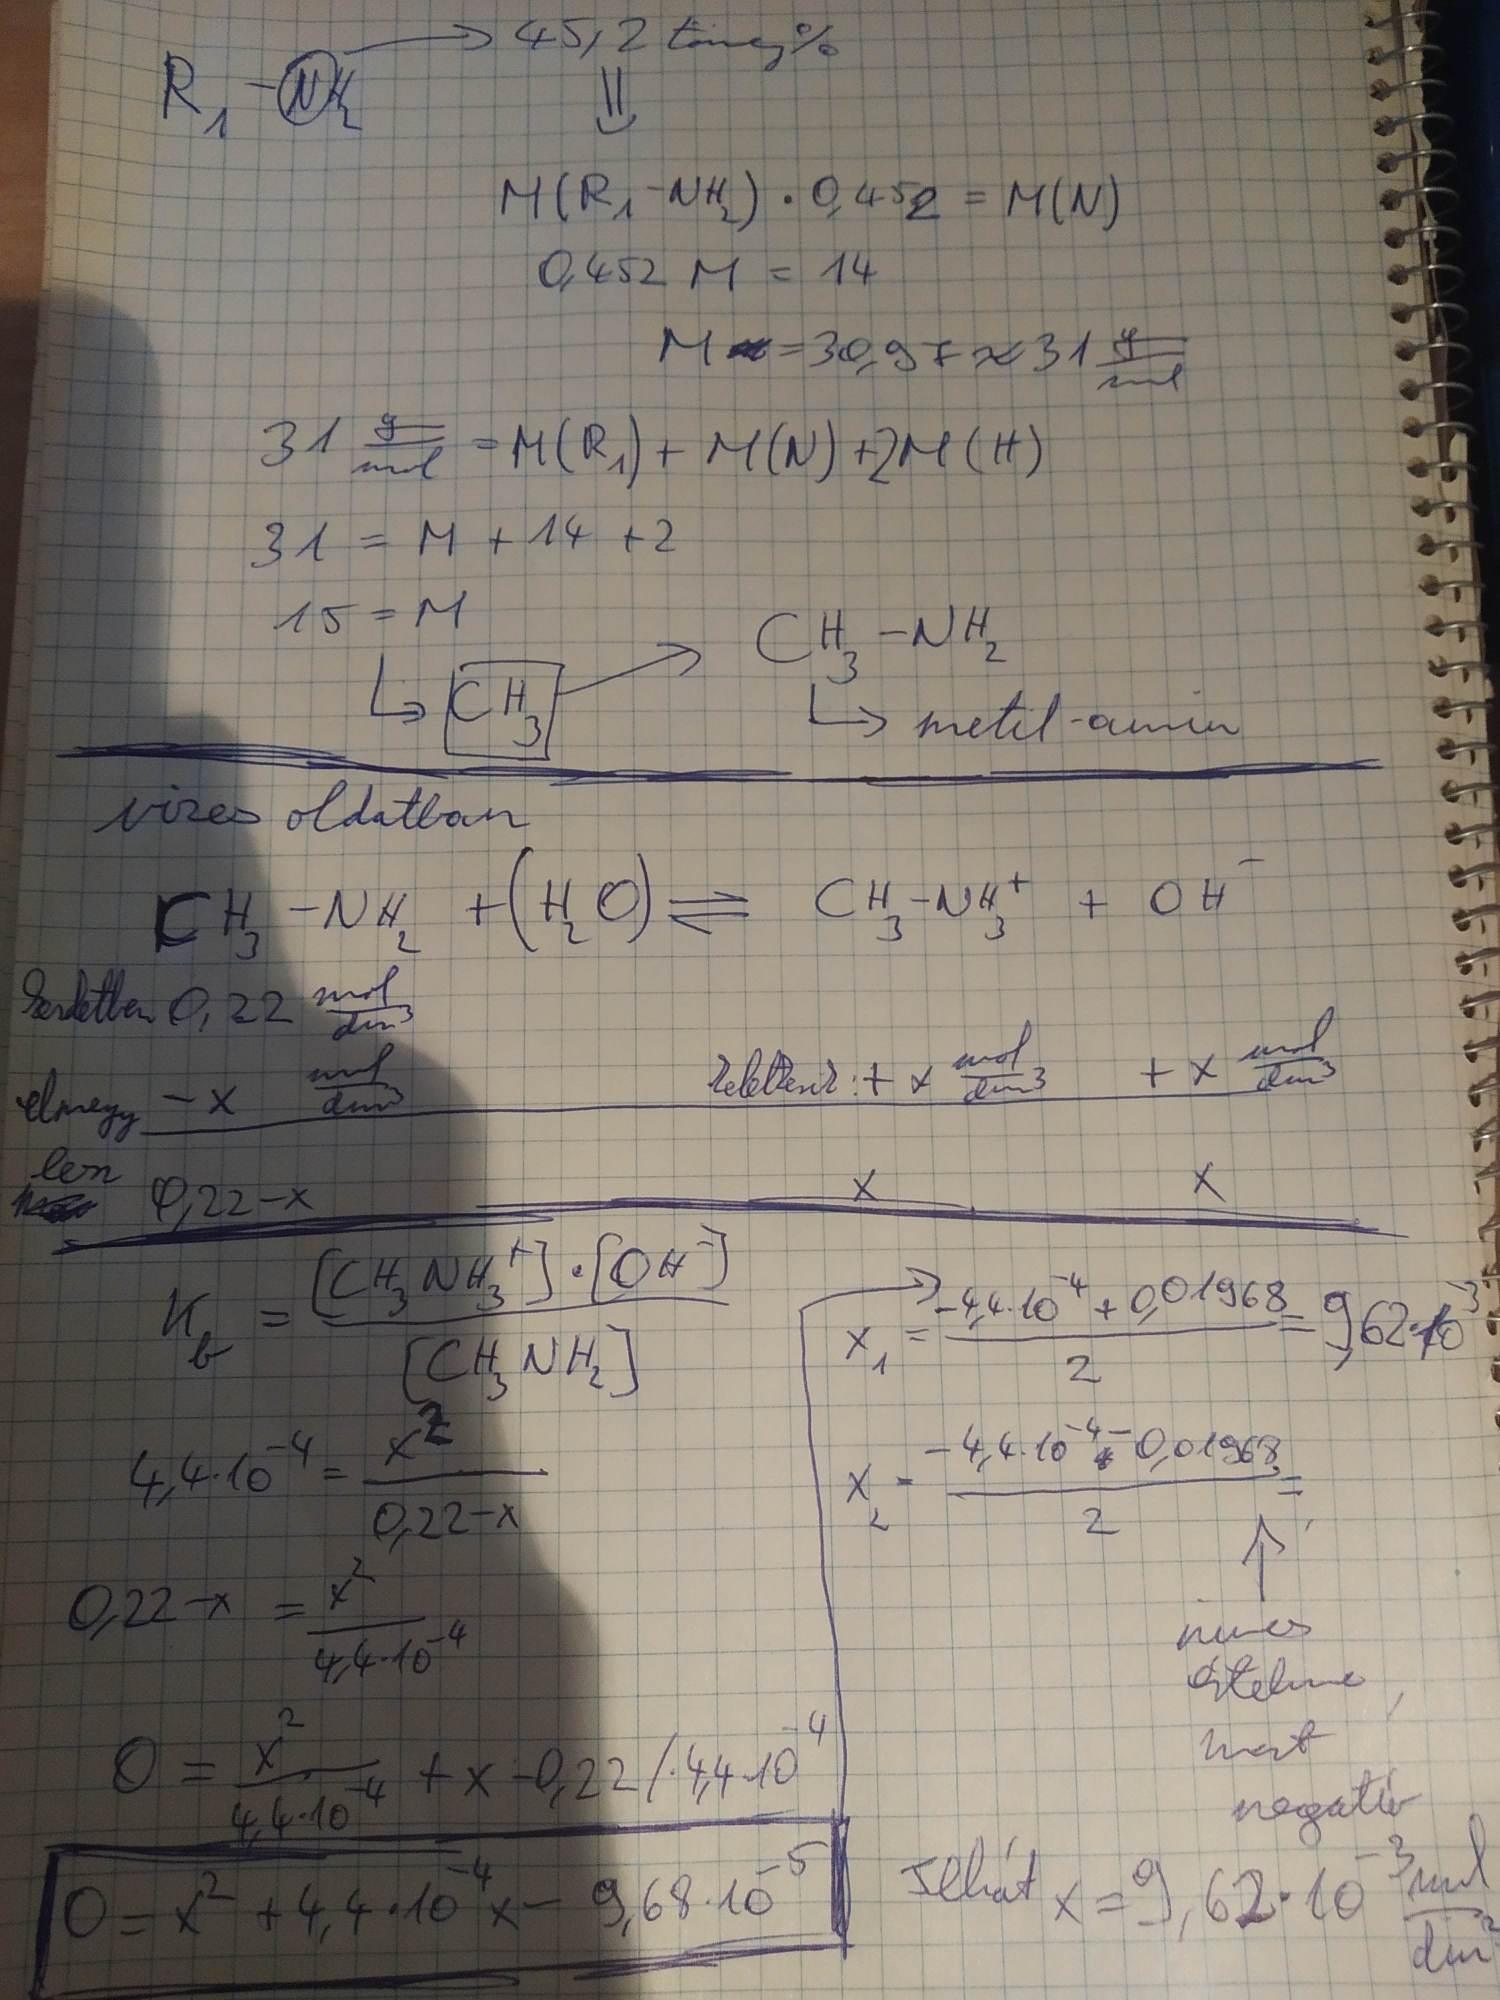 R₁ -NH₂ → 45,2 tömeg%
⇓
M(R₁-NH₂) · 0,452 = M(N)
0,452 M = 14
M = 30,97 ≈ 31 g/mol
31 g/mol = M(R₁) + M(N) + 2M(H)
31 = M + 14 + 2
15 = M
↳ CH₃ → CH₃-NH₂
↳ metil-amin
vizes oldatban
CH₃-NH₂ + (H₂O) ⇌ CH₃-NH₃⁺ + OH⁻
kezdetben 0,22 mol/dm³
elmegy -x mol/dm³ keletkezik: + x mol/dm³ + x mol/dm³
lesz 0,22-x x x
K_b = [CH₃NH₃⁺]·[OH⁻] / [CH₃NH₂]
4,4·10⁻⁴ = x² / 0,22-x
0,22-x = x² / 4,4·10⁻⁴
0 = x² / 4,4·10⁻⁴ + x - 0,22 /·4,4·10⁻⁴
0 = x² + 4,4·10⁻⁴x - 9,68·10⁻⁵
→ x₁ = -4,4·10⁻⁴ + 0,01968 / 2 = 9,62·10⁻³
x₂ = -4,4·10⁻⁴ - 0,01968 / 2 =
↑
nincs
értelme,
mert
negatív
Tehát x = 9,62·10⁻³ mol/dm³